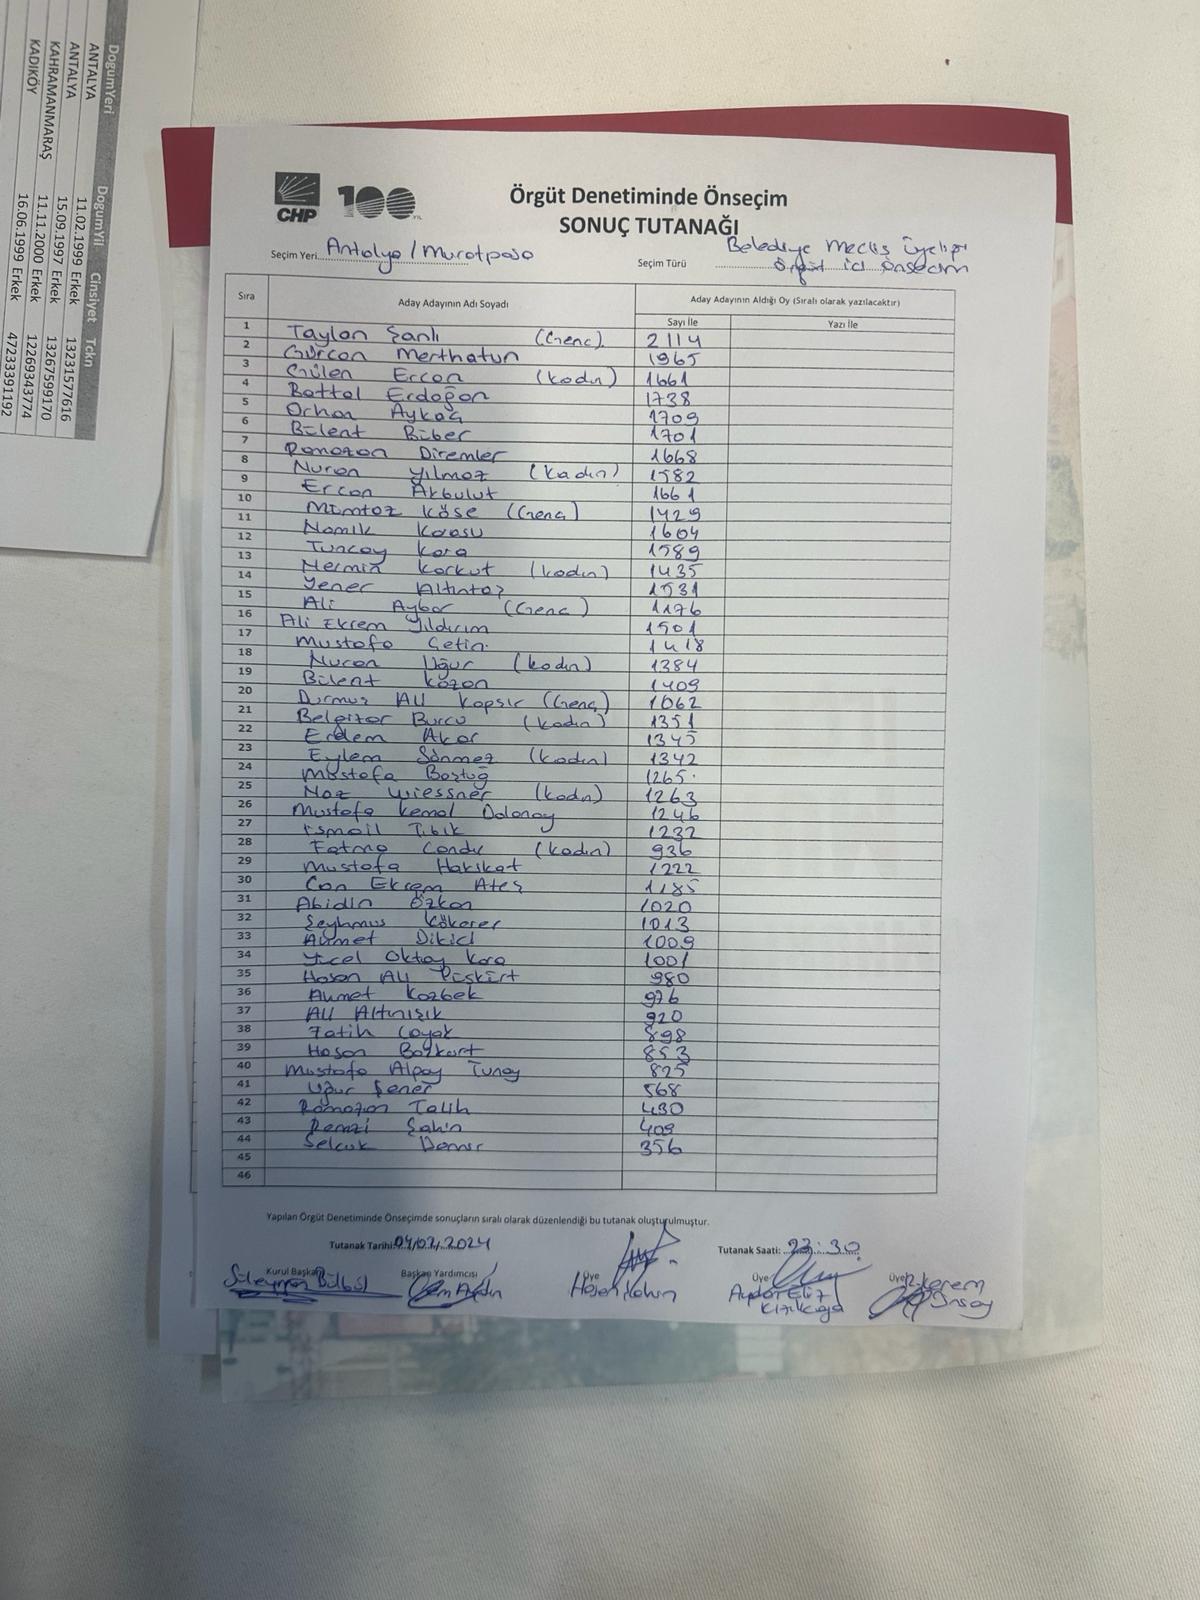 DogumYeri DogumYil Cinsiyet Tckn
ANTALYA 11.02.1999 Erkek 13231577616
ANTALYA 15.09.1997 Erkek 13267599170
KAHRAMANMARAŞ 11.11.2000 Erkek 12269343774
KADIKÖY 16.06.1999 Erkek 47233391192
CHP
100 YIL
Örgüt Denetiminde Önseçim
SONUÇ TUTANAĞI
Seçim Yeri Antalya / Muratpaşa
Seçim Türü Belediye Meclis Üyeliği
Örgüt içi önseçim
Sıra Aday Adayının Adı Soyadı Aday Adayının Aldığı Oy (Sıralı olarak yazılacaktır)
Sayı İle Yazı İle
1 Taylan Şanlı (Genç) 2114
2 Gürcan Merthatun 1965
3 Gülen Ercan (kadın) 1661
4 Battal Erdoğan 1738
5 Orhan Aykaç 1709
6 Bülent Büber 1701
7 Ramazan Diremler 1668
8 Nuran Yılmaz (kadın) 1582
9 Ercan Akbulut 1661
10 Mümtaz Köse (Genç) 1429
11 Namık Karasu 1604
12 Tuncay Kara 1589
13 Nermin Korkut (kadın) 1435
14 Yener Altıntaş 1531
15 Ali Aybar (Genç) 1176
16 Ali Ekrem Yıldırım 1501
17 Mustafa Çetin 1418
18 Nuran Uğur (kadın) 1384
19 Bülent Kozan 1409
20 Durmuş Ali Kapsız (Genç) 1062
21 Belgitar Burcu (kadın) 1351
22 Erdem Akar 1345
23 Eylem Sönmez (kadın) 1342
24 Mustafa Boztuğ 1265
25 Naz Wiessner (kadın) 1263
26 Mustafa Kemal Dalanay 1246
27 İsmail Tıbık 1232
28 Fatma Candır (kadın) 936
29 Mustafa Hakikat 1222
30 Can Ekrem Ateş 1185
31 Abidin Özkan 1020
32 Şeyhmus Kökerer 1013
33 Ahmet Dikici 1009
34 Yücel Oktay Kara 1001
35 Hasan Ali Pişkirt 980
36 Ahmet Kozbek 976
37 Ali Altınışık 920
38 Fatih Çoyak 898
39 Hasan Bozkurt 853
40 Mustafa Alpay Tunay 825
41 Uğur Şener 568
42 Ramazan Talih 430
43 Remzi Şahin 409
44 Selçuk Demir 356
45
46
Yapılan Örgüt Denetiminde Önseçimde sonuçların sıralı olarak düzenlendiği bu tutanak oluşturulmuştur.
Tutanak Tarihi: 04/02/2024 Tutanak Saati: 23:30
Kurul Başkanı Başkan Yardımcısı Üye Üye Üye
Süleyman Bülbül Cem Aydın